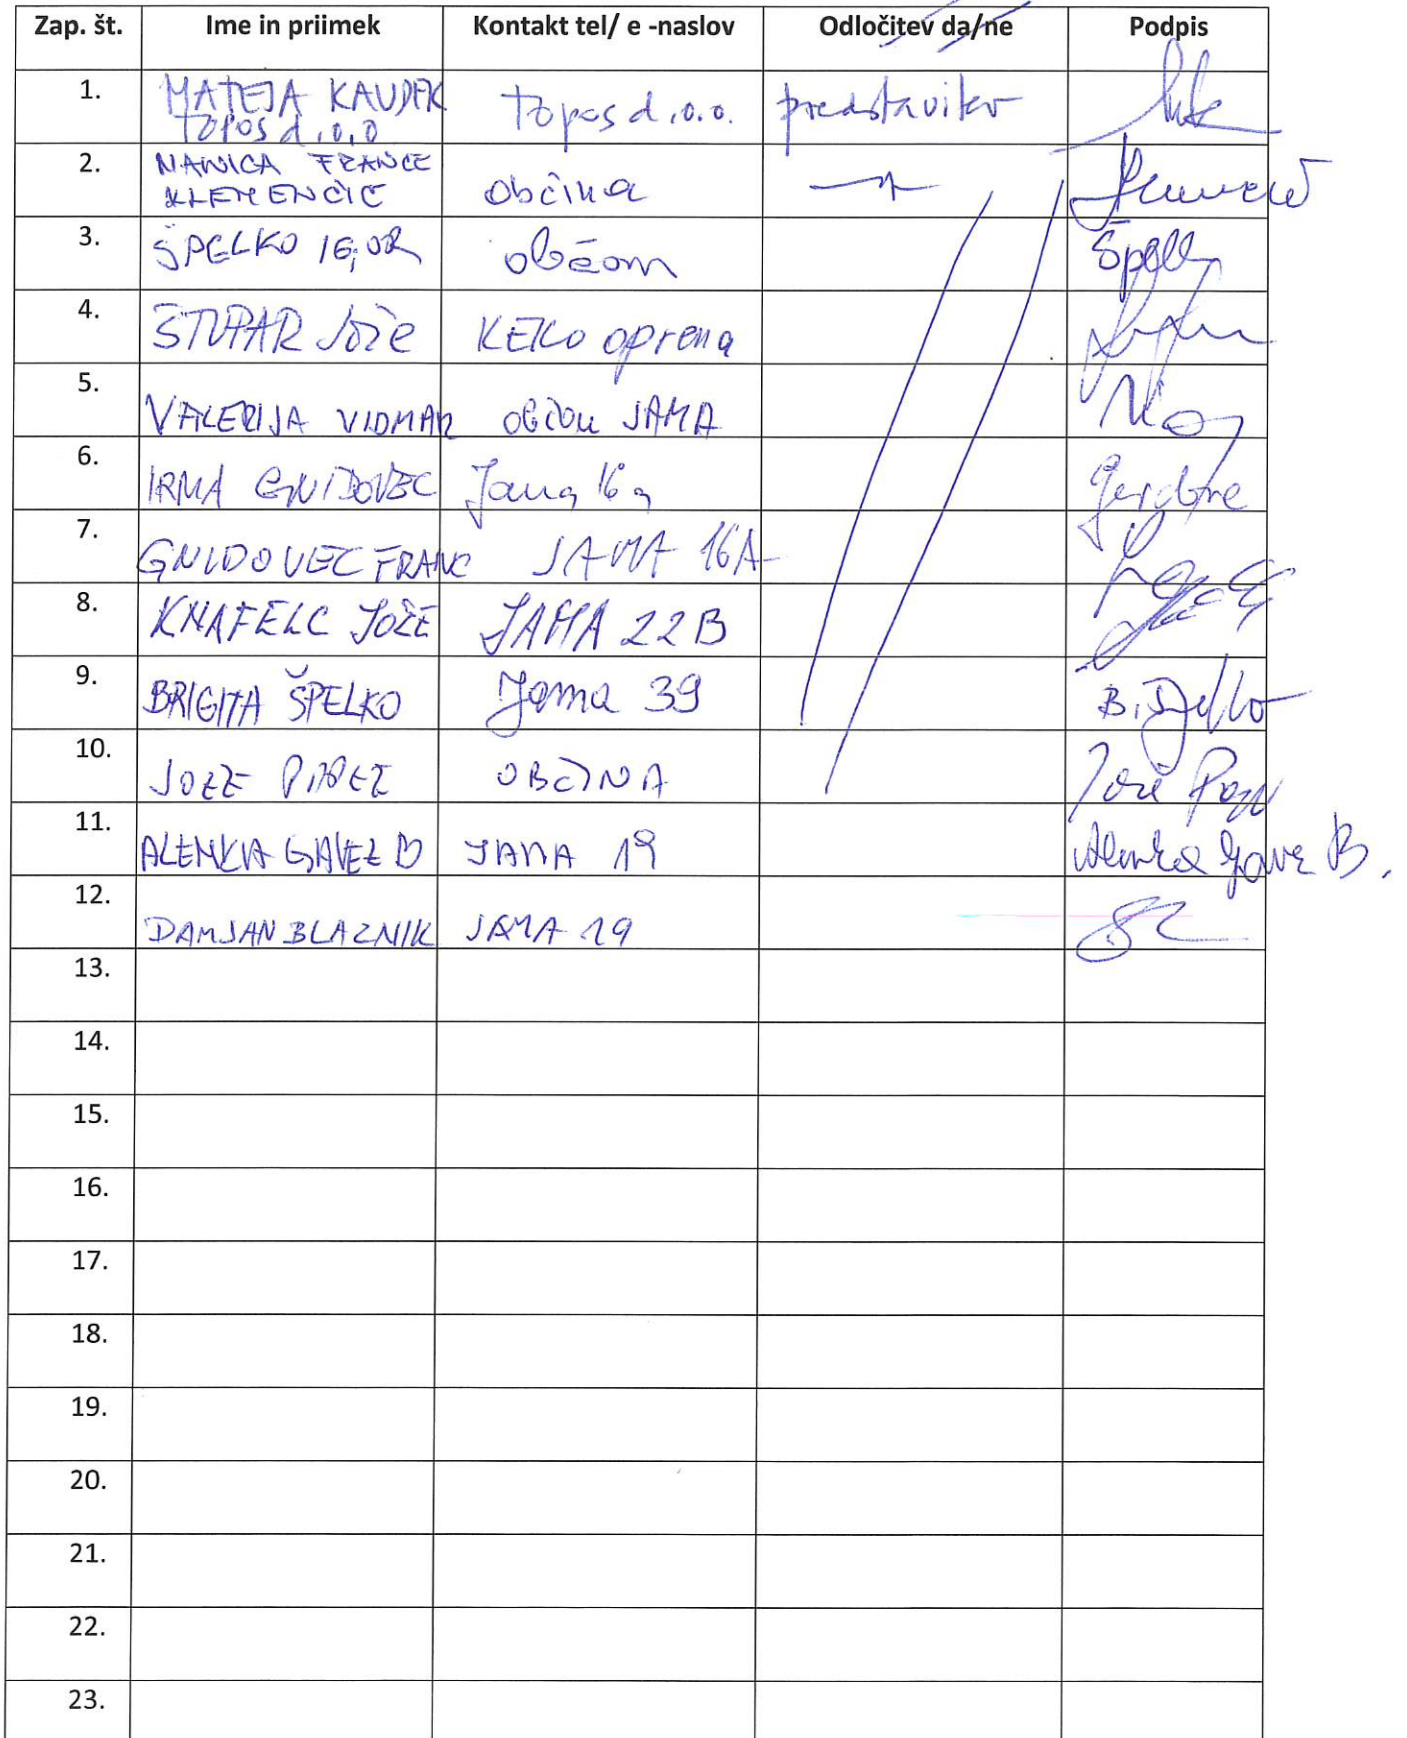 Zap. št. Ime in priimek Kontakt tel/ e -naslov Odločitev da/ne Podpis
1. MATEJA KAUDEK topos d.o.o. predstavitev
TOPOS d.o.o
2. FRANCE
KLEMENČIČ občina
3. ŠPELKO občan
4. STUPAR Jože KEKO oprema
5. VALERIJA VIDMAR občan JAMA
6. IRMA GNIDOVEC Jama 16a
7. GNIDOVEC FRANC JAMA 16A
8. KNAFELC JOŽE JAMA 22B
9. BRIGITA ŠPELKO Jama 39 B. Špelko
10. JOŽE OBČINA Jože
11. ALENKA GAVEZ B JAMA 19 Alenka Gavez B.
12. DAMJAN BLAZNIK JAMA 19
13.
14.
15.
16.
17.
18.
19.
20.
21.
22.
23.